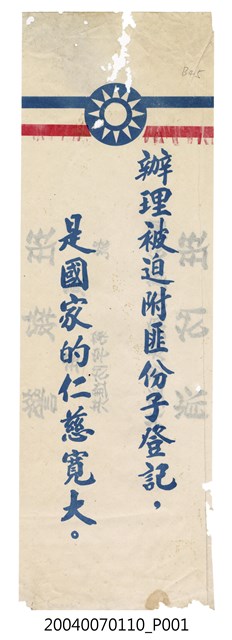 辦理被迫附匪份子登記，
是國家的仁慈寬大。
20040070110_P001